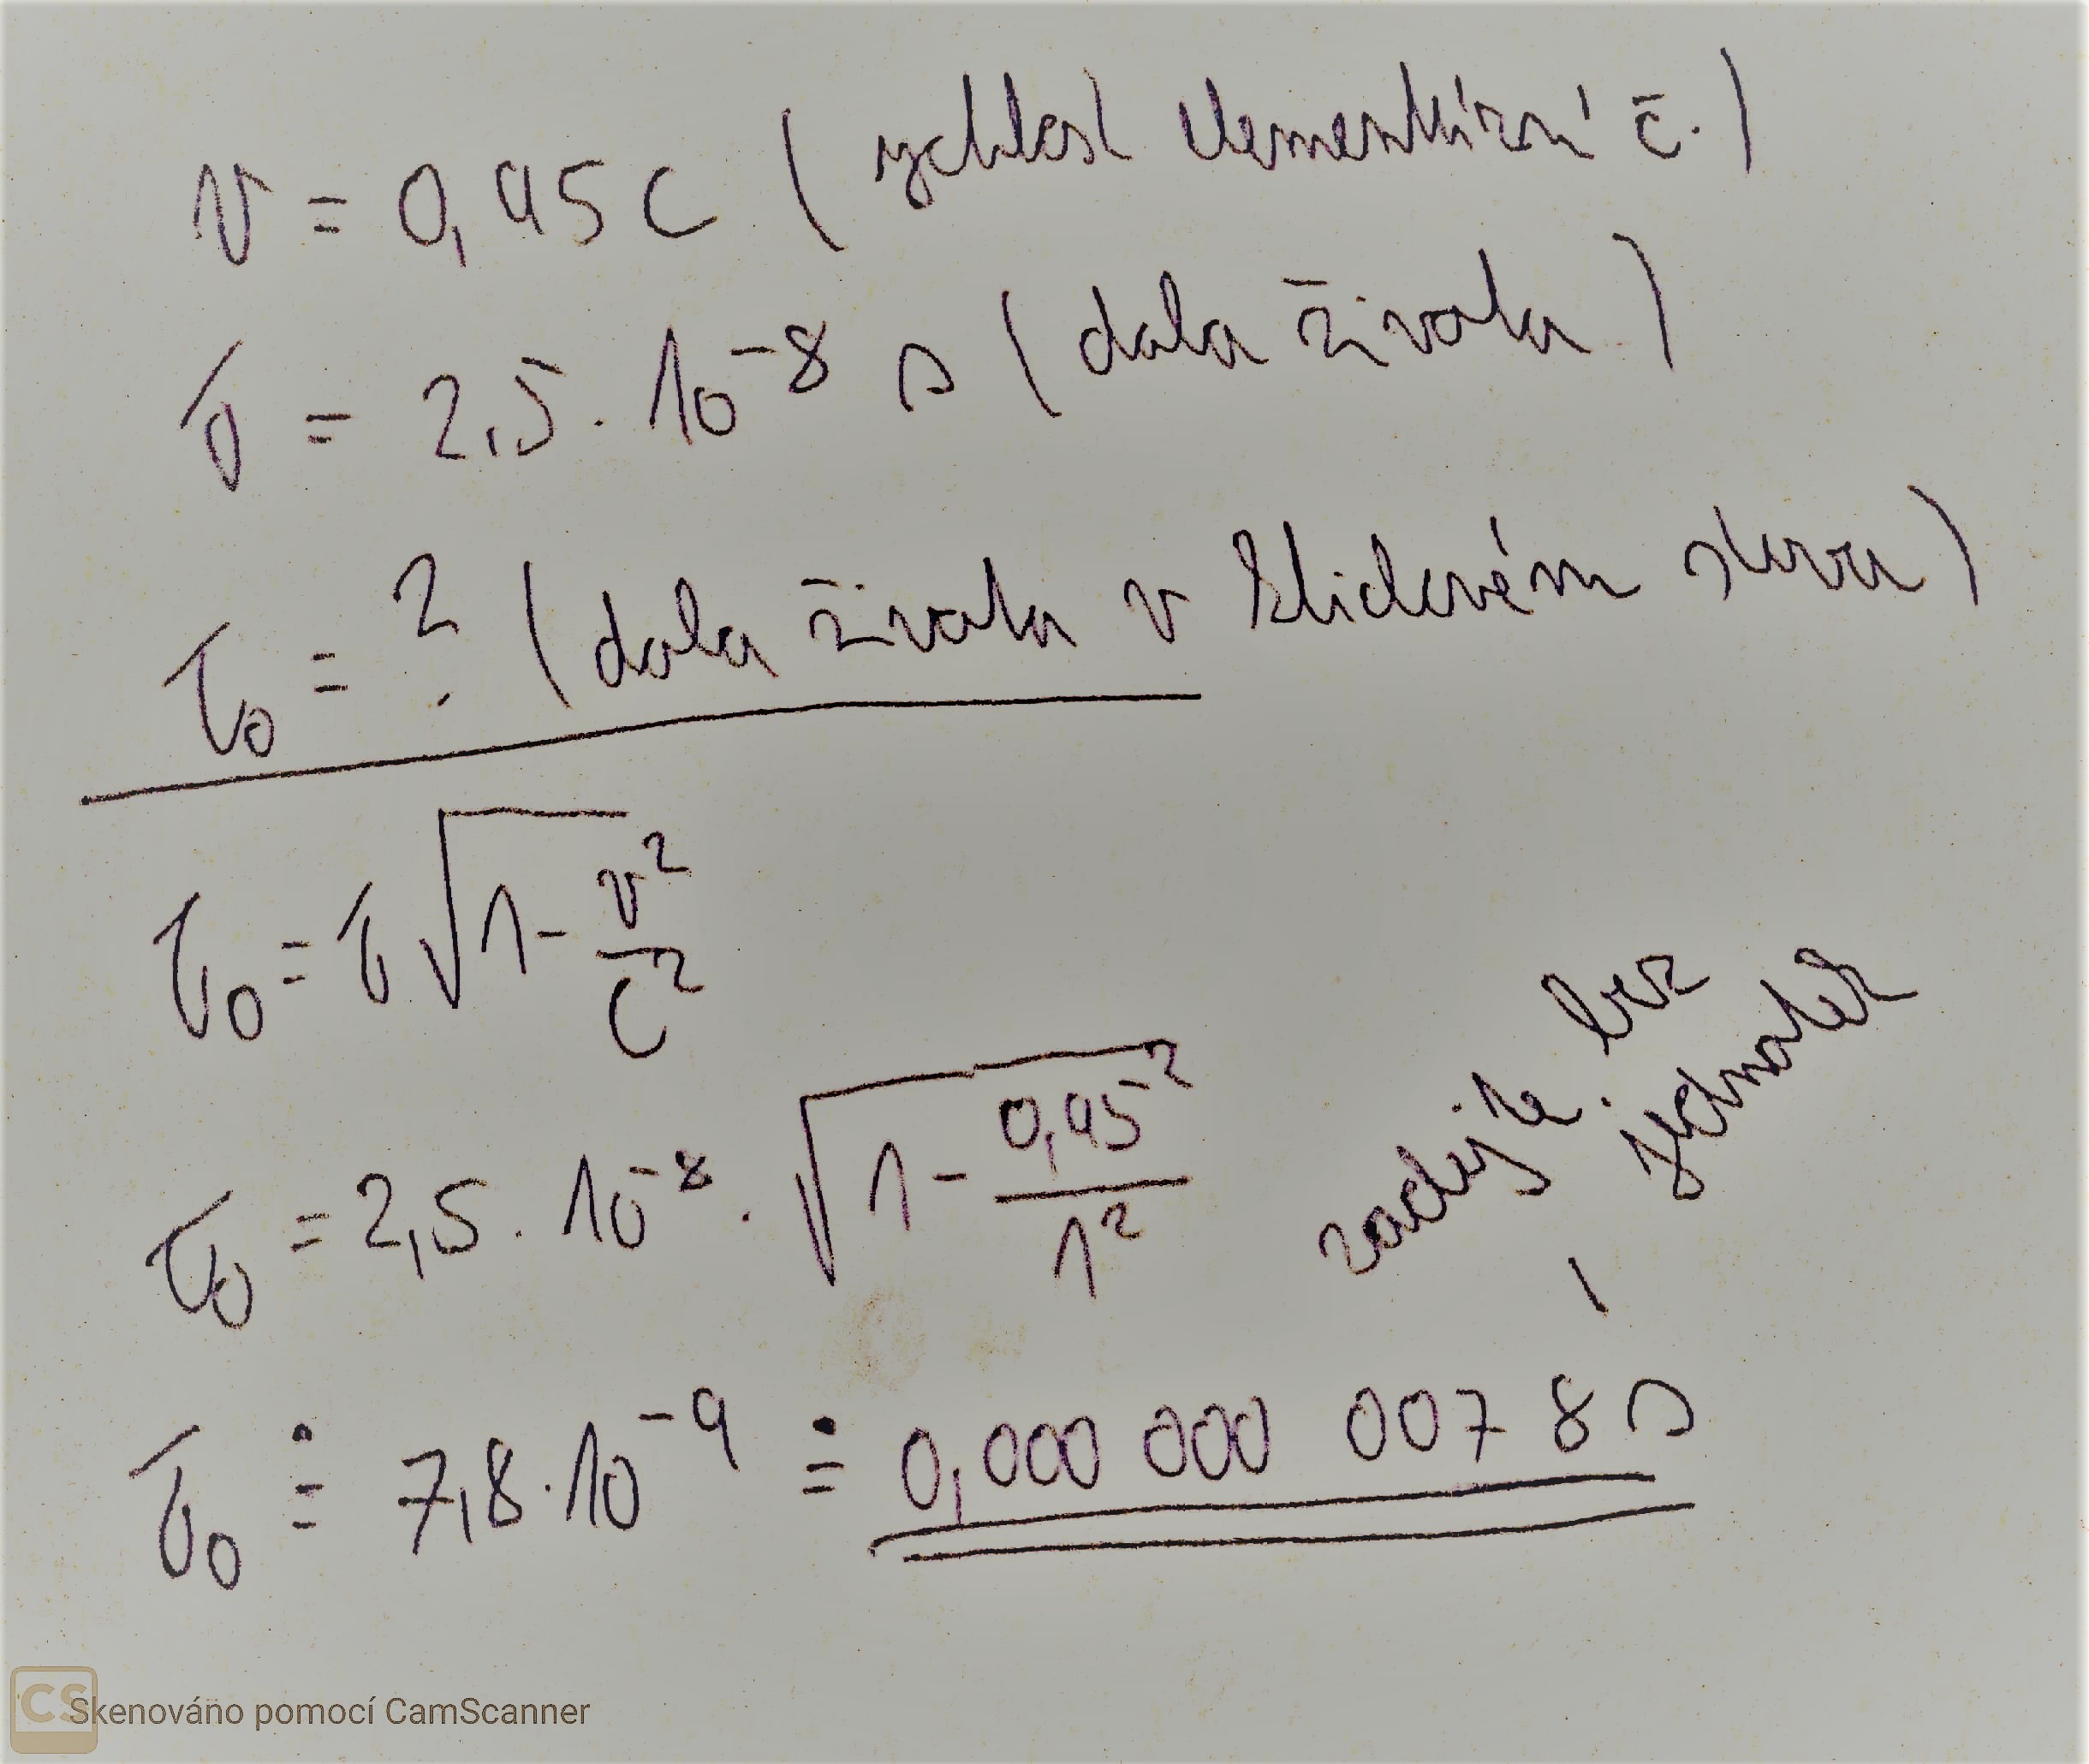 v = 0,95 c (rychlost elementární č.)
τ = 2,5 . 10⁻⁸ s (doba života)
τ₀ = ? (doba života v klidovém stavu)
τ₀ = τ √(1 - v²/c²)
τ₀ = 2,5 . 10⁻⁸ . √(1 - 0,95²/1²)
zadij. že bez
jednotek
τ₀ ≐ 7,8 . 10⁻⁹ ≐ 0,000 000 007 8 s
CS Skenováno pomocí CamScanner